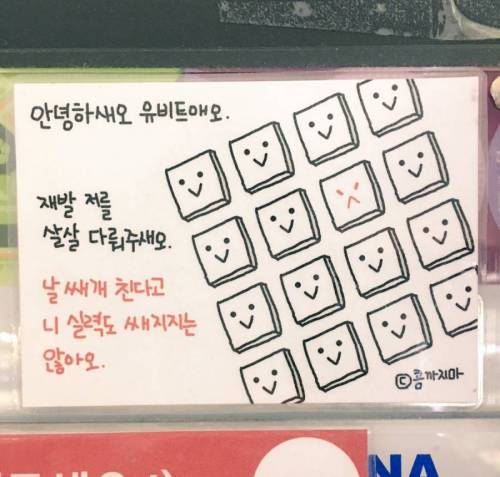 안녕하새오 유비트애오.
재발 저를
살살 다뤄주새오.
날 쌔개 친다고
니 실력도 쌔지지는
않아오.
ⓒ콤까지마
NA